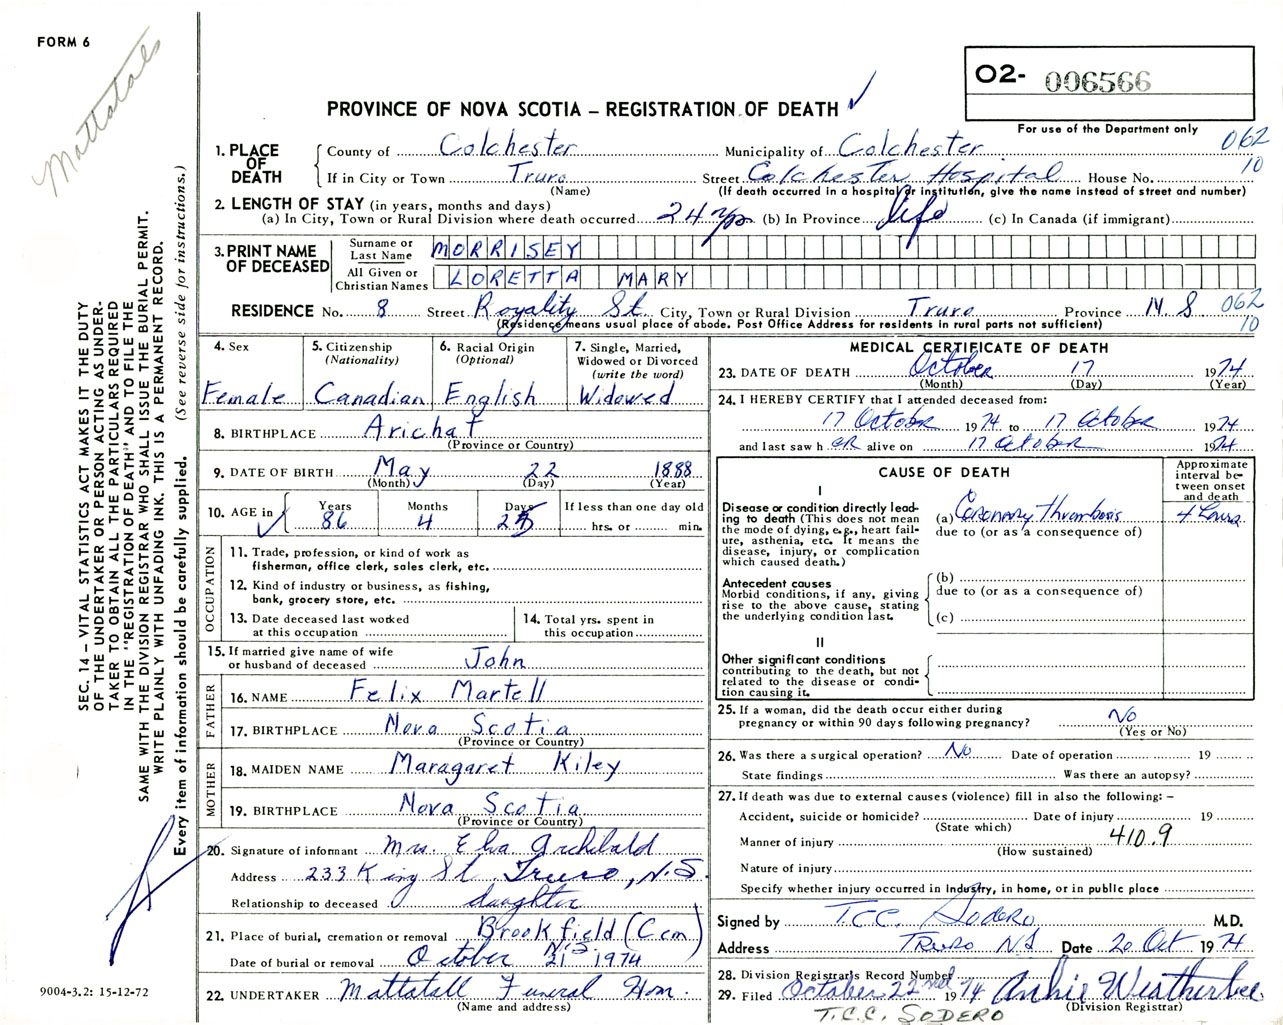 FORM 6
Mattatall
O2- 006566
PROVINCE OF NOVA SCOTIA – REGISTRATION OF DEATH ✓
For use of the Department only
062
10
1. PLACE OF DEATH
County of Colchester Municipality of Colchester
If in City or Town Truro Street Colchester Hospital House No.
(Name) (If death occurred in a hospital or institution, give the name instead of street and number)
2. LENGTH OF STAY (in years, months and days)
(a) In City, Town or Rural Division where death occurred 24 yrs (b) In Province life (c) In Canada (if immigrant)
3. PRINT NAME OF DECEASED
Surname or Last Name MORRISEY
All Given or Christian Names LORETTA MARY
RESIDENCE No. 8 Street Royality St. City, Town or Rural Division Truro Province N S 062
10
(Residence means usual place of abode. Post Office Address for residents in rural parts not sufficient)
4. Sex
Female
5. Citizenship
(Nationality)
Canadian
6. Racial Origin
(Optional)
English
7. Single, Married, Widowed or Divorced
(write the word)
Widowed
8. BIRTHPLACE Arichat
(Province or Country)
9. DATE OF BIRTH May 22 1888
(Month) (Day) (Year)
10. AGE in ✓ Years 86 Months 4 Days 25 If less than one day old
hrs. or min.
OCCUPATION
11. Trade, profession, or kind of work as fisherman, office clerk, sales clerk, etc.
12. Kind of industry or business, as fishing, bank, grocery store, etc.
13. Date deceased last worked at this occupation
14. Total yrs. spent in this occupation
15. If married give name of wife or husband of deceased John
FATHER
16. NAME Felix Martell
17. BIRTHPLACE Nova Scotia
(Province or Country)
MOTHER
18. MAIDEN NAME Maragaret Kiley
19. BIRTHPLACE Nova Scotia
(Province or Country)
20. Signature of informant Mrs. Elva Archibald
Address 233 King St. Truro, N.S.
Relationship to deceased daughter
21. Place of burial, cremation or removal Brookfield (Cem)
N.S.
Date of burial or removal October 21 1974
22. UNDERTAKER Mattatall Funeral Hom.
(Name and address)
MEDICAL CERTIFICATE OF DEATH
23. DATE OF DEATH October 17 1974
(Month) (Day) (Year)
24. I HEREBY CERTIFY that I attended deceased from:
17 October 1974 to 17 October 1974
and last saw h er alive on 17 October 1974
CAUSE OF DEATH
Approximate interval between onset and death
I
Disease or condition directly leading to death (This does not mean the mode of dying, e.g., heart failure, asthenia, etc. It means the disease, injury, or complication which caused death.)
(a) Coronary Thrombosis 4 hours
due to (or as a consequence of)
Antecedent causes
Morbid conditions, if any, giving rise to the above cause, stating the underlying condition last.
(b)
due to (or as a consequence of)
(c)
II
Other significant conditions
contributing to the death, but not related to the disease or condition causing it.
25. If a woman, did the death occur either during pregnancy or within 90 days following pregnancy? No
(Yes or No)
26. Was there a surgical operation? No Date of operation 19
State findings Was there an autopsy?
27. If death was due to external causes (violence) fill in also the following: –
Accident, suicide or homicide? Date of injury 19
(State which)
Manner of injury 410.9
(How sustained)
Nature of injury
Specify whether injury occurred in Industry, in home, or in public place
Signed by T.C.C. Sodero M.D.
Address Truro N.S Date 20 Oct 1974
28. Division Registrar's Record Number
29. Filed October 22nd 1974 Archie Weatherbee
(Division Registrar)
T.C.C. SODERO
SEC. 14 – VITAL STATISTICS ACT MAKES IT THE DUTY
OF THE UNDERTAKER OR PERSON ACTING AS UNDER-
TAKER TO OBTAIN ALL THE PARTICULARS REQUIRED
IN THE "REGISTRATION OF DEATH" AND TO FILE THE
SAME WITH THE DIVISION REGISTRAR WHO SHALL ISSUE THE BURIAL PERMIT.
WRITE PLAINLY WITH UNFADING INK. THIS IS A PERMANENT RECORD.
Every item of information should be carefully supplied. (See reverse side for instructions.)
9004-3.2: 15-12-72